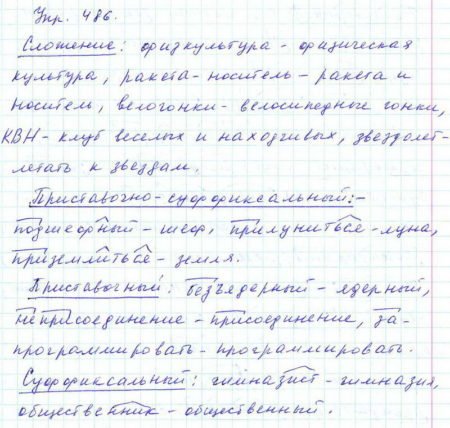 Упр. 486.
Сложение: физкультура - физическая
культура, ракета-носитель - ракета и
носитель, велогонки - велосипедные гонки,
КВН - клуб веселых и находчивых, звездолет-
летать к звездам.
Приставочно-суффиксальный:-
подшефный - шеф, прилуниться - луна,
приземлиться - земля.
Приставочный: безъядерный - ядерный,
неприсоединение - присоединение, за-
программировать - программировать.
Суффиксальный: гимназист - гимназия,
общественник - общественный.